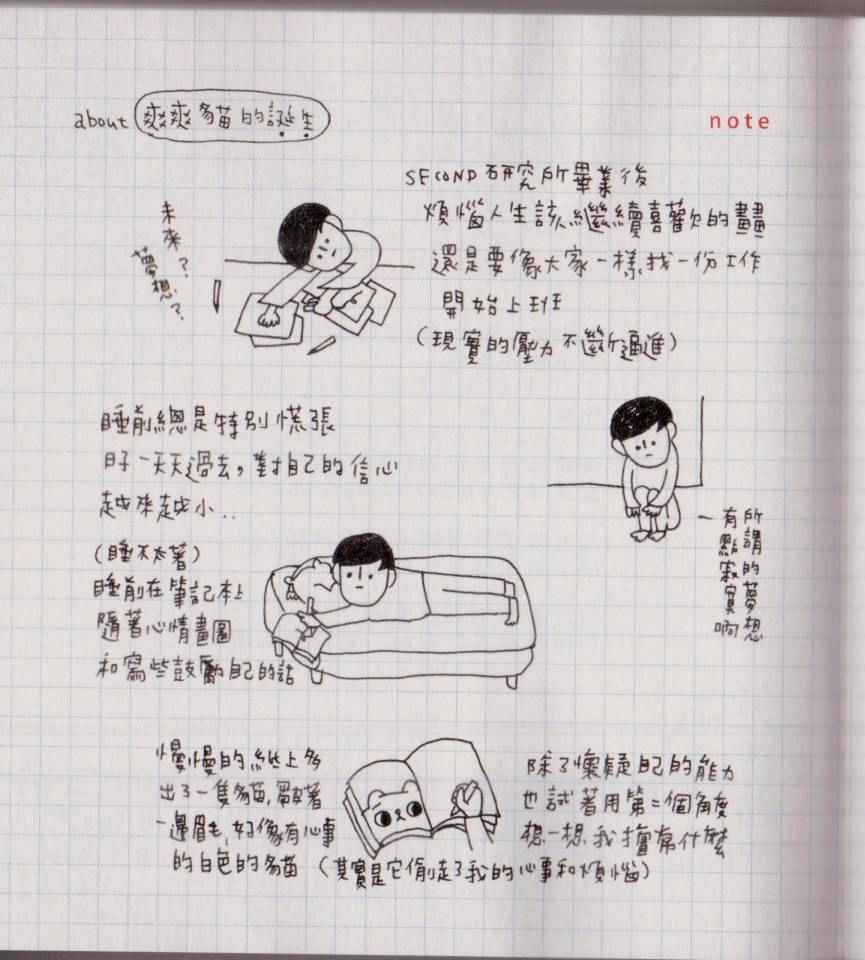 about 爽爽貓的誕生
note
未來?
夢想?
SECOND 研究所畢業後
煩惱人生該繼續喜歡的畫畫
還是要像大家一樣找一份工作
開始上班
(現實的壓力不斷逼進)
睡前總是特別慌張
日子一天天過去,對自己的信心
越來越小..
所謂的夢想
有點寂寞啊
(睡不太著)
睡前在筆記本上
隨著心情畫圖
和寫些鼓勵自己的話
慢慢的紙上多
出了一隻貓,皺著
一邊眉毛,好像有心事
的白色的貓 (其實是它偷走了我的心事和煩惱)
除了懷疑自己的能力
也試著用第二個角度
想一想,我擅常什麼